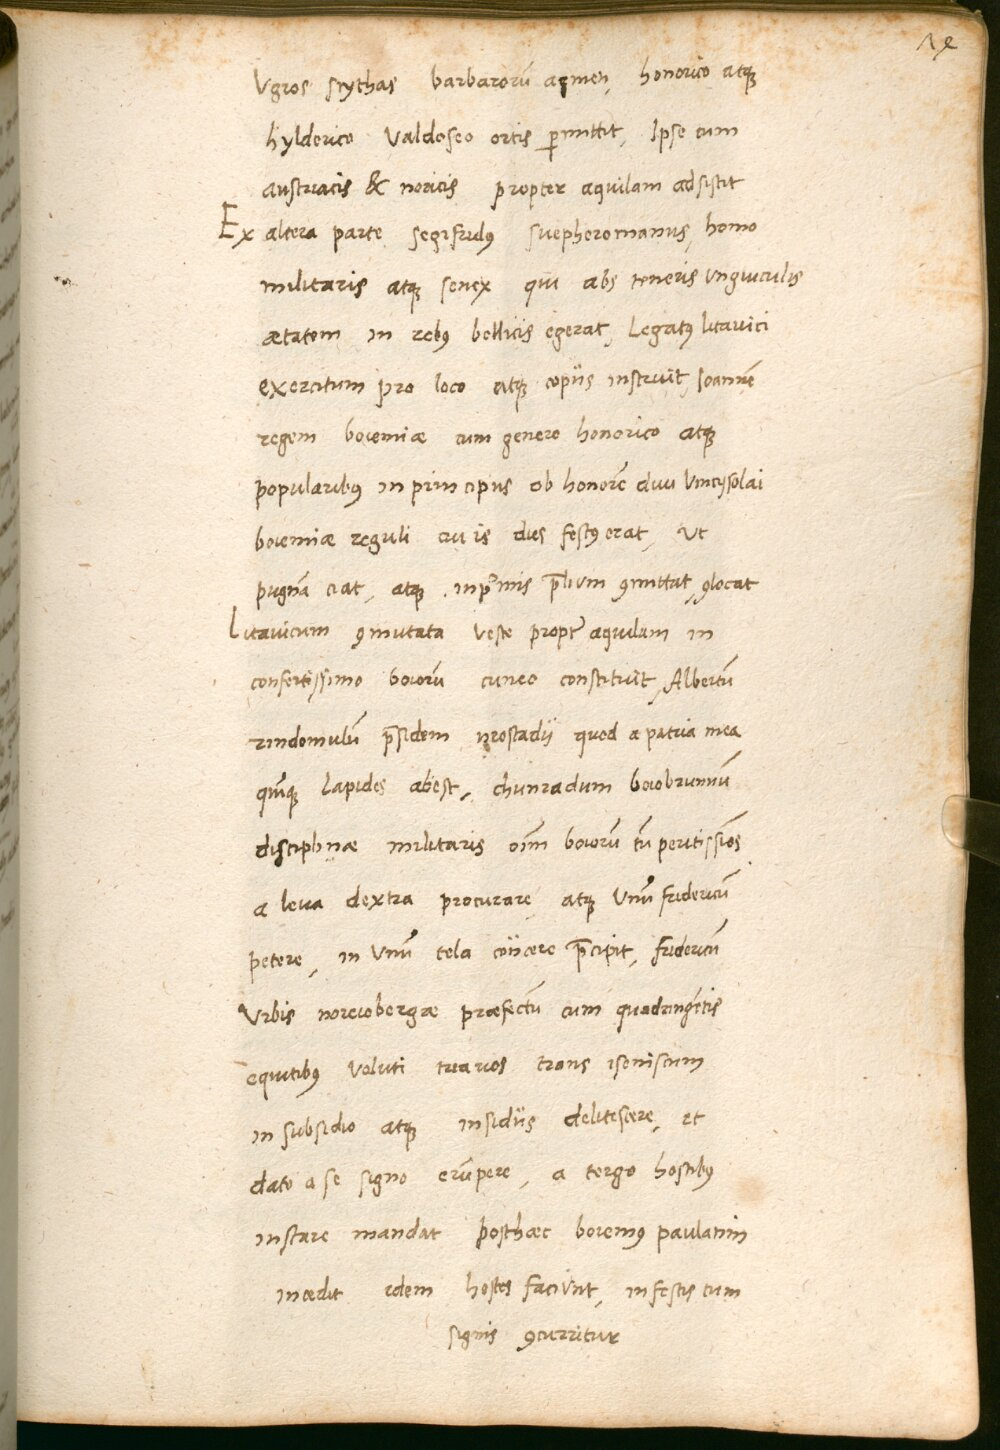 Vgros scythas barbarorū agmen, honorico atqꝫ
hylderico Valdoseo ortis ꝑmittit, Ipse cum
austriacis & noricis propter aquilam adsistit
Ex altera parte segifridꝰ suepheromanus, homo
militaris atqꝫ senex qui abs teneris unguiculis
ætatem in rebꝰ bellicis egerat, Legatꝰ litauici
exercitum pro loco atqꝫ copiis instruit, Ioannē
regem boiemiæ cum genero honorico atqꝫ
popularibꝰ in principiis ob honorē diui Vincyslai
boiemiæ reguli cui is dies festꝰ erat, Ut
pugnā ciat, atqꝫ inpⁱmis p̄lium ꝯmittat, ꝯlocat
Litauicum ꝯmutata veste propt̄ aquilam in
confertissimo boiorū cuneo constituit, Albertū
rindomulū p̄sidem nrostadii quod a patria mea
qnīqꝫ lapides abest, chunradum boiobrunnū
disciplinæ militaris oīm boiorū tū peritissīos
a leua dextra procurare, atqꝫ Vnū fridericū
petere, in Vnū tela coiicere p̄cipit, fridericū
Vrbis noreiobergæ præfectū cum quadringētis
equitibꝰ veluti triarios trans iseniscum
in subsidio atqꝫ insidiis delitescere, et
dato a se signo erūpere, a tergo hostibꝰ
instare mandat posthæc boiemꝰ paulatim
incedit idem hostes faciunt, infestis cum
signis ꝯcurritur